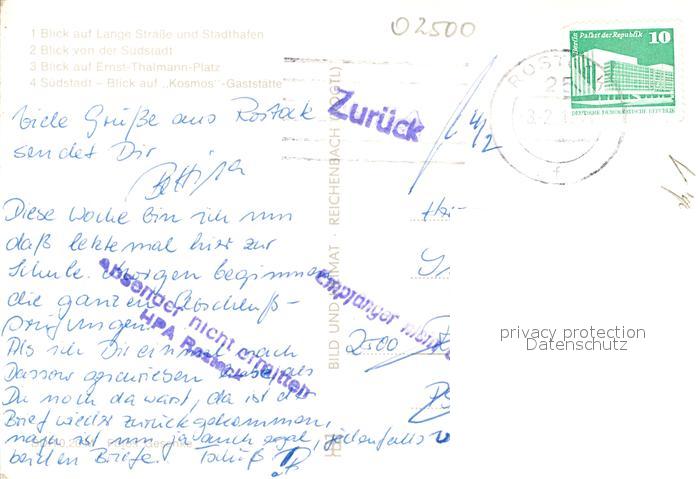 02500
1 Blick auf Lange Straße und Stadthafen
2 Blick von der Südstadt
3 Blick auf Ernst-Thälmann-Platz
4 Südstadt – Blick auf „Kosmos"-Gaststätte
Berlin Palast der Republik 10
DEUTSCHE DEMOKRATISCHE REPUBLIK
ROSTOCK
25
f
Zurück
Viele Grüße aus Rostock
sendet Dir
Bettina
Diese Woche bin ich nun
daß letzte mal hier zur
Schule. Morgen beginnen
die ganzen Abschluß-
prüfungen.
Als ich Dir einmal nach
Dassow geschrieben habe, als
Du noch da warst, da ist der
Brief wieder zurückgekommen,
naja ist nun ja auch egal, jedenfalls
beiden Briefe. Tschüß
Absender nicht ermittelt
HPA Rostock
Empfänger
2500
BILD UND HEIMAT · REICHENBACH (VOGTL)
privacy protection
Datenschutz